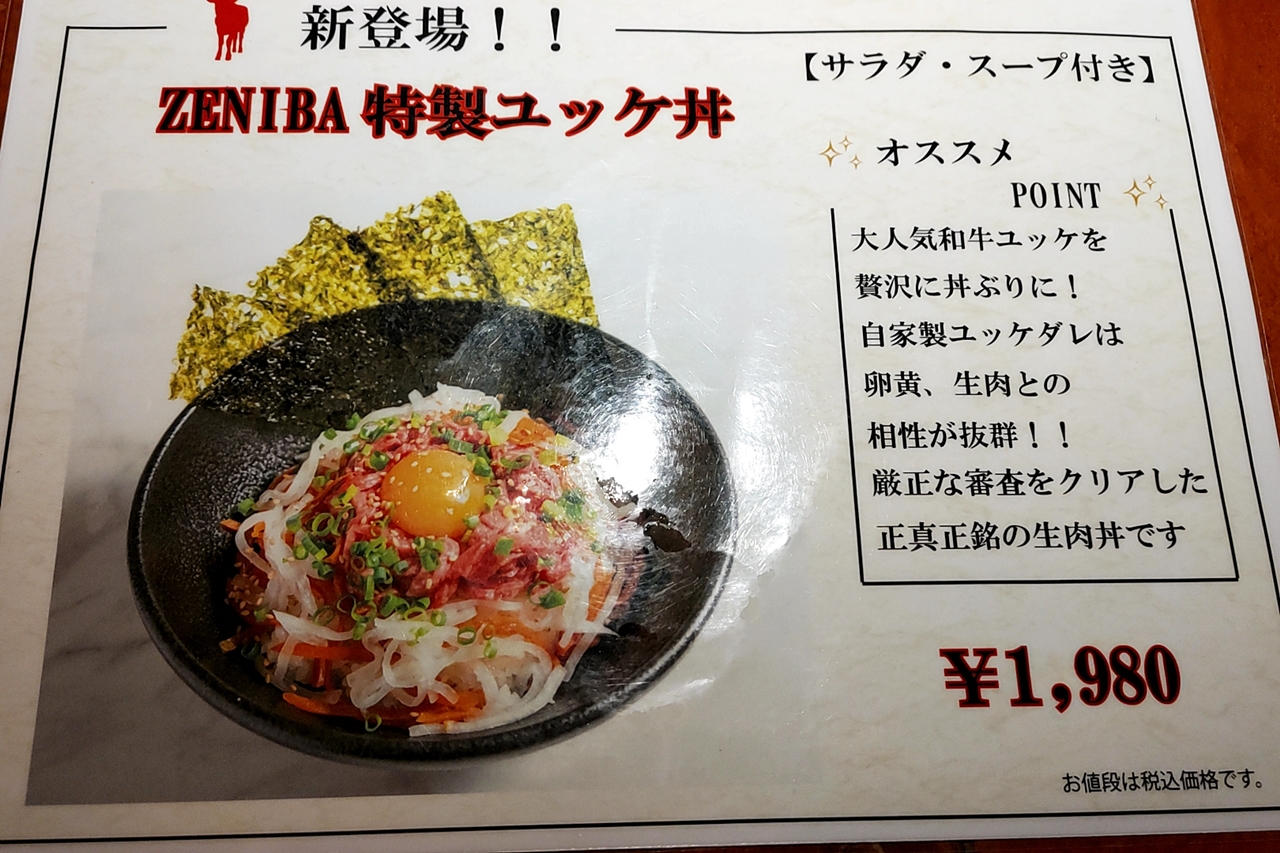 新登場！！
ZENIBA 特製ユッケ丼
【サラダ・スープ付き】
オススメ
POINT
大人気和牛ユッケを
贅沢に丼ぶりに！
自家製ユッケダレは
卵黄、生肉との
相性が抜群！！
厳正な審査をクリアした
正真正銘の生肉丼です
¥1,980
お値段は税込価格です。